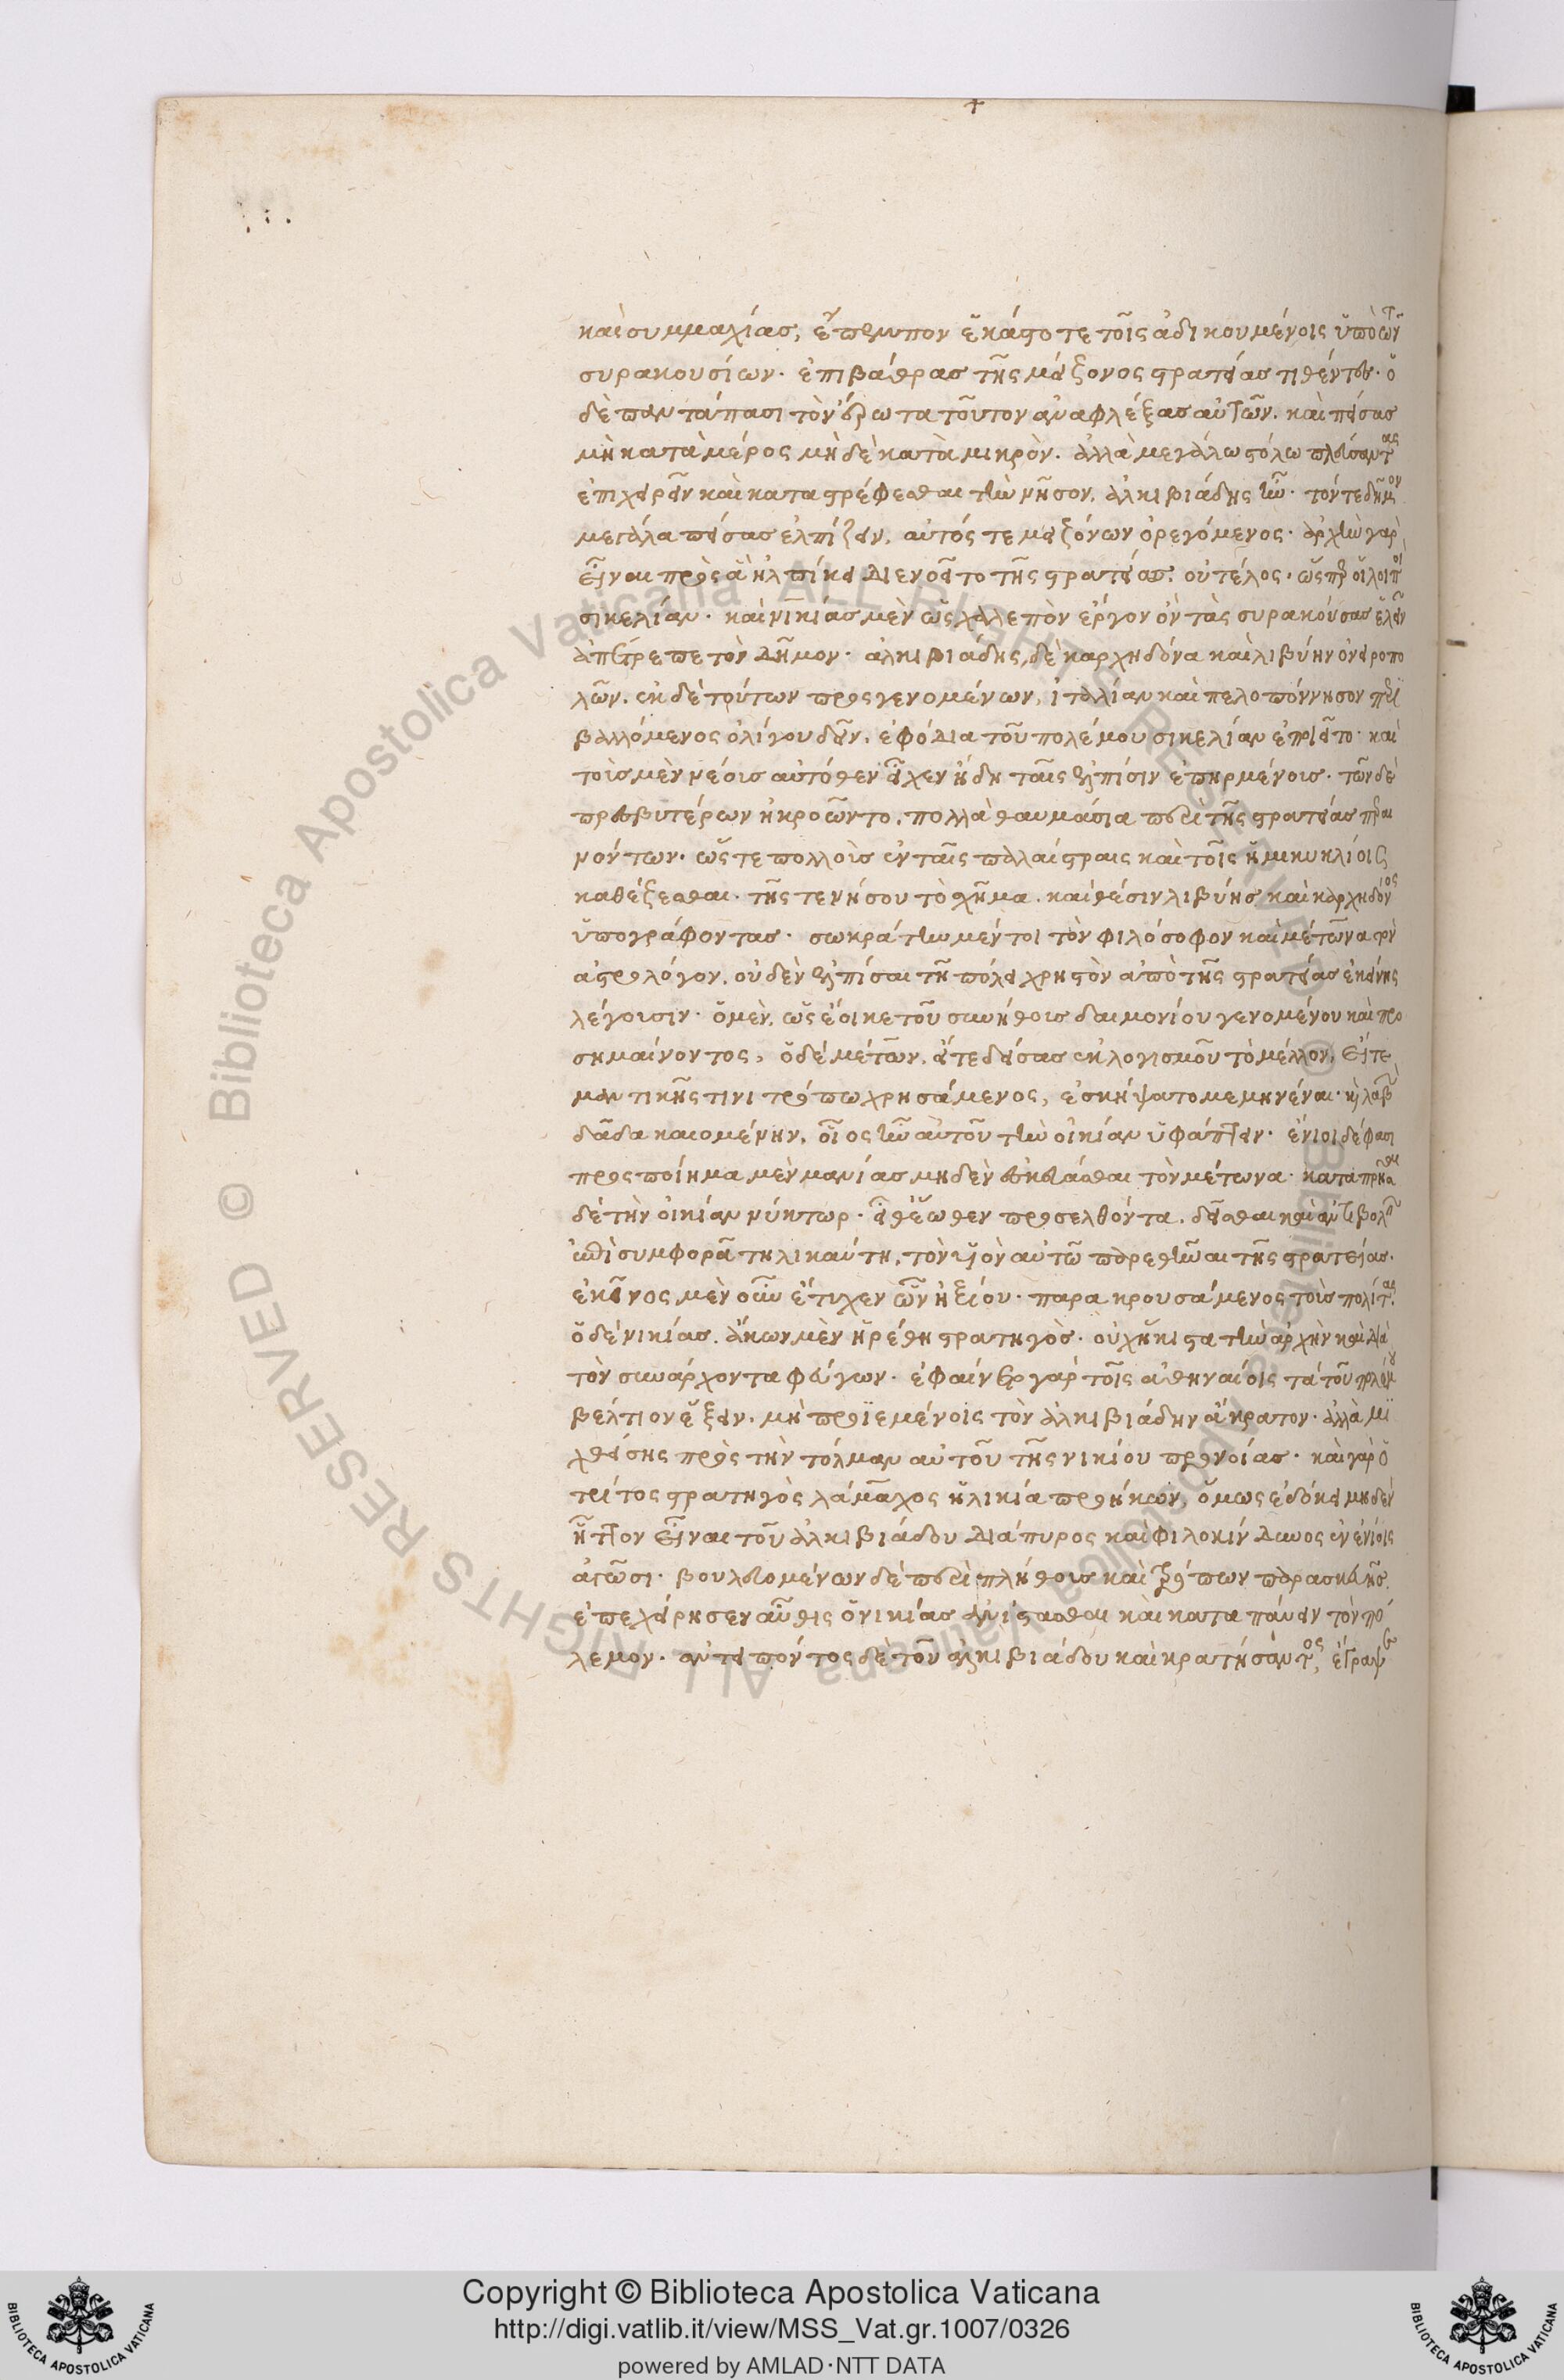 καὶ συμμαχίας, ἔπεμπον ἑκάστοτε τοῖς ἀδικουμένοις ὑπὸ τῶν
συρακουσίων· ἐπιβάθρας τῆς μείζονος στρατείας τιθέντες· ὁ
δὲ παντάπασι τὸν ἔρωτα τοῦτον ἀναφλέξας αὐτῶν. καὶ πείσας
μὴ κατὰ μέρος μὴ δὲ κατὰ μικρὸν. ἀλλὰ μεγάλω στόλω πλεύσαντας
ἐπιχειρεῖν καὶ καταστρέφεσθαι τὴν νῆσον, ἀλκιβιάδης ἦν· τόν τε δῆμον
μεγάλα πείσας ἐλπίζειν, αὐτός τε μειζόνων ὀρεγόμενος· ἀρχὴν γὰρ
εἶναι πρὸς ἃ ἠλπίκει διενοεῖτο τῆς στρατείας, οὐ τέλος· ὥσπερ οἱ λοιποὶ
σικελίαν· καὶ νικίας μὲν ὡς χαλεπὸν ἔργον ὂν τὰς συρακούσας ἑλεῖν
ἀπέτρεπε τὸν δῆμον· ἀλκιβιάδης δὲ καρχηδόνα καὶ λιβύην ὀνειροπο
λῶν. ἐκ δὲ τούτων προσγενομένων, ἰταλίαν καὶ πελοπόννησον περι
βαλλόμενος ὀλίγου δεῖν, ἐφόδια τοῦ πολέμου σικελίαν ἐποιεῖτο· καὶ
τοὺς μὲν νέους αὐτόθεν εἶχεν ἤδη ταῖς ἐλπίσιν ἐπηρμένους. τῶν δὲ
πρεσβυτέρων ἠκροῶντο, πολλὰ θαυμάσια περὶ τῆς στρατείας περαι
νόντων. ὥστε πολλοὺς ἐν ταῖς παλαίστραις καὶ τοῖς ἡμικυκλίοις
καθέζεσθαι. τῆς τε νήσου τὸ σχῆμα. καὶ θέσιν λιβύης καὶ καρχηδόνος
ὑπογράφοντας· σωκράτην μέντοι τὸν φιλόσοφον καὶ μέτωνα τὸν
ἀστρολόγον, οὐδὲν ἐλπίσαι τῆ πόλει χρηστὸν ἀπὸ τῆς στρατείας ἐκείνης
λέγουσιν· ὁ μὲν, ὡς ἔοικε τοῦ συνήθους δαιμονίου γενομένου καὶ προ
σημαίνοντος, ὁ δὲ μέτων, εἴτε δείσας ἐκ λογισμοῦ τὸ μέλλον, εἴτε
μαντικῆς τινι τρόπω χρησάμενος, ἐσκήψατο μεμηνέναι· καὶ λαβὼν
δᾶδα καιομένην, οἷος ἦν αὐτοῦ τὴν οἰκίαν ὑφάπτειν· ἔνιοι δέ φασι
προσποίημα μὲν μανίας μηδὲν σκευάσασθαι τὸν μέτωνα· καταπρῆσαι
δὲ τὴν οἰκίαν νύκτωρ. εἶθ' ἕωθεν προσελθόντα, δεῖσθαι καὶ ἀντιβολεῖν
ἐπὶ συμφορᾶ τηλικαύτη, τὸν υἱὸν αὐτῶ παρεθῆναι τῆς στρατείας.
ἐκεῖνος μὲν οὖν ἔτυχεν ὧν ἠξίου· παρακρουσάμενος τοὺς πολίτας.
ὁ δὲ νικίας. ἄκων μὲν ἡρέθη στρατηγὸς· οὐχ ἥκιστα τὴν ἀρχὴν καὶ διὰ
τὸν συνάρχοντα φεύγων· ἐφαίνετο γὰρ τοῖς ἀθηναίοις τὰ τοῦ πολέμου
βέλτιον ἕξειν. μὴ προϊεμένοις τὸν ἀλκιβιάδην ἄκρατον· ἀλλὰ μι
χθείσης πρὸς τὴν τόλμαν αὐτοῦ τῆς νικίου προνοίας. καὶ γὰρ ὁ
τρίτος στρατηγὸς λάμαχος ἡλικία προήκων, ὅμως ἐδόκει μηδὲν
ἧττον εἶναι τοῦ ἀλκιβιάδου διάπυρος καὶ φιλοκίνδυνος ἐν ἐνίοις
ἀγῶσι. βουλευομένων δὲ περὶ πλήθους καὶ τρόπων παρασκευῆς.
ἐπεχείρησεν αὖθις ὁ νικίας ἐνίστασθαι καὶ καταπαύειν τὸν πό
λεμον. ἀντειπόντος δὲ τοῦ ἀλκιβιάδου καὶ κρατήσαντος, ἔγραψε
Copyright © Biblioteca Apostolica Vaticana
http://digi.vatlib.it/view/MSS_Vat.gr.1007/0326
powered by AMLAD·NTT DATA
BIBLIOTECA APOSTOLICA VATICANA
BIBLIOTECA APOSTOLICA VATICANA
© Biblioteca Apostolica Vaticana ALL RIGHTS RESERVED
© Biblioteca Apostolica Vaticana ALL RIGHTS RESERVED